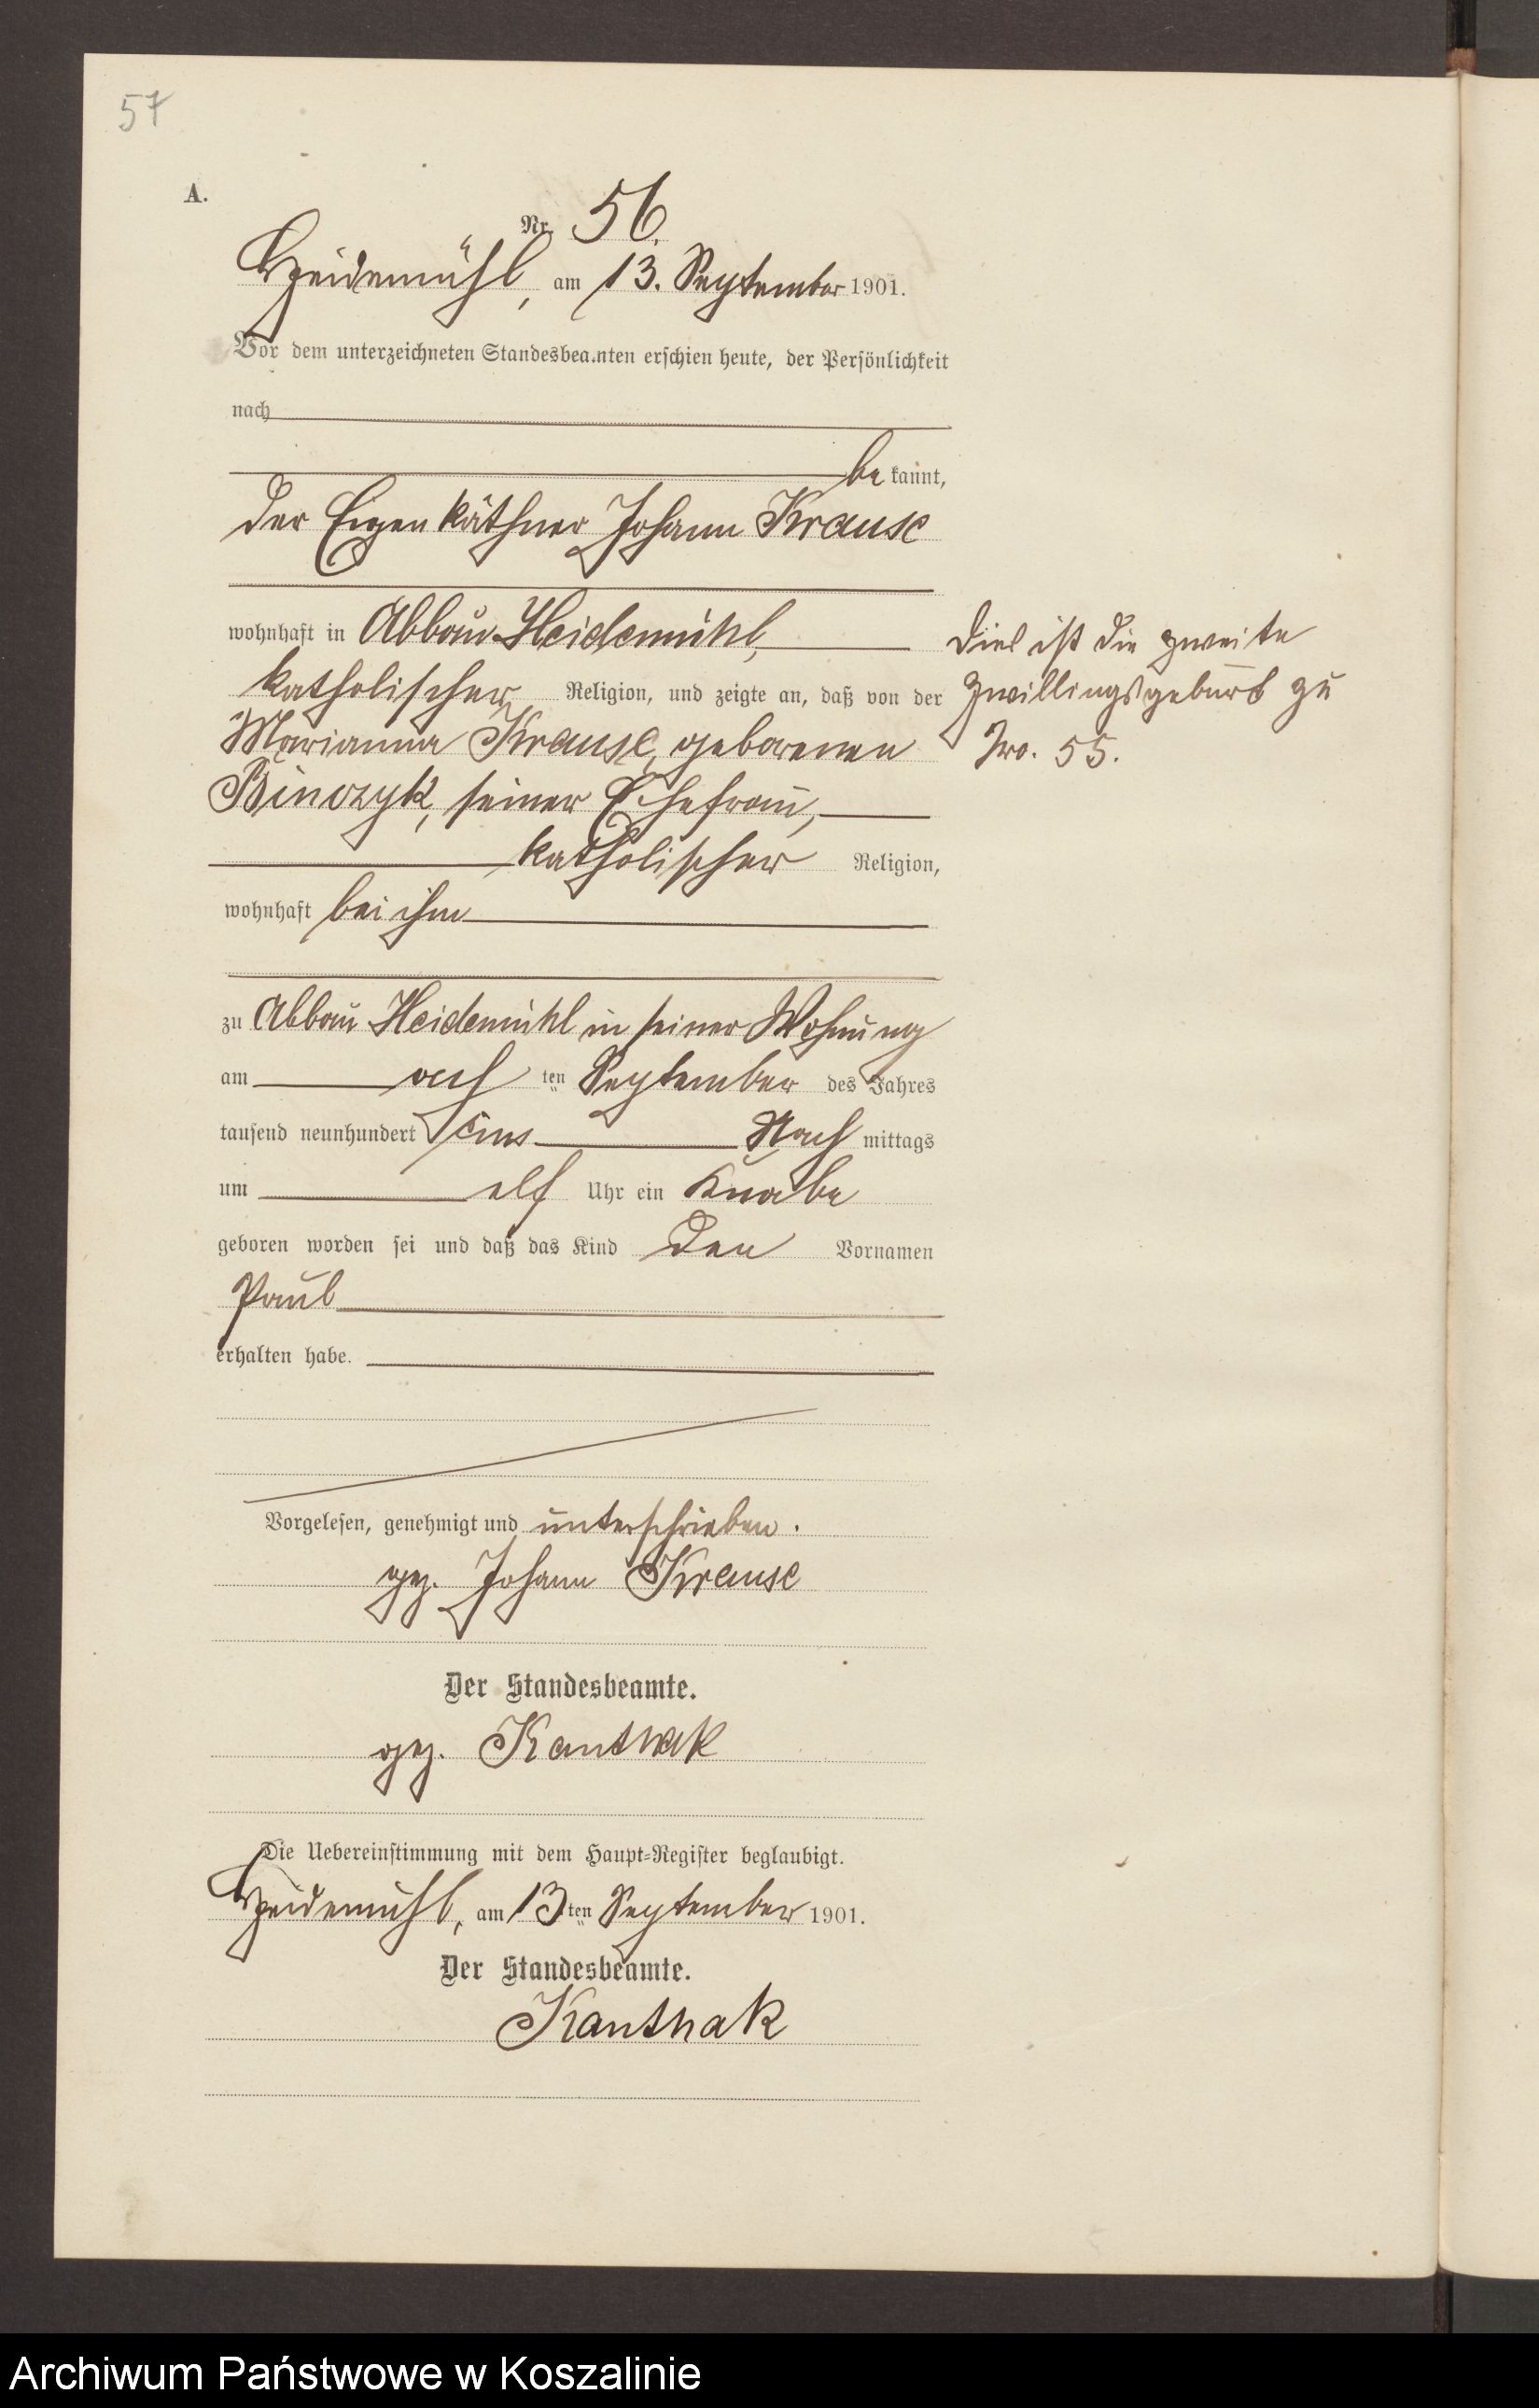 57
A.
Nr. 56.
Heidemühl, am 13. September 1901.
Vor dem unterzeichneten Standesbeamten erschien heute, der Persönlichkeit
nach
be kannt,
der Eigenkäthner Johann Krause
wohnhaft in Abbau Heidemühl,
katholischer Religion, und zeigte an, daß von der
Marianna Krause, geborenen
Binczyk, seiner Ehefrau,
katholischer Religion,
wohnhaft bei ihm
zu Abbau Heidemühl in seiner Wohnung
am acht ten September des Jahres
tausend neunhundert eins Nach mittags
um elf Uhr ein Knabe
geboren worden sei und daß das Kind den Vornamen
Paul
erhalten habe.
Dies ist die zweite
Zwillingsgeburt zu
Nro. 55.
Vorgelesen, genehmigt und unterschrieben.
gez. Johann Krause
Der Standesbeamte.
gez. Kanthak
Die Uebereinstimmung mit dem Haupt-Register beglaubigt.
Heidemühl, am 13ten September 1901.
Der Standesbeamte.
Kanthak
Archiwum Państwowe w Koszalinie